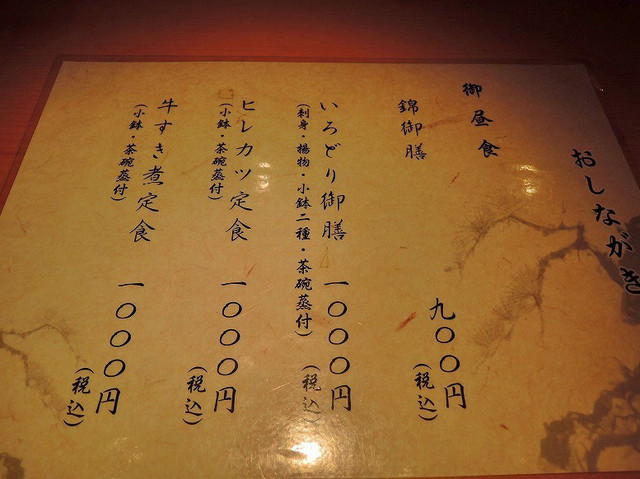 おしながき
御昼食
錦御膳 九〇〇円
(税込)
いろどり御膳 一〇〇〇円
(刺身・揚物・小鉢二種・茶碗蒸付) (税込)
ヒレカツ定食 一〇〇〇円
(小鉢・茶碗蒸付) (税込)
牛すき煮定食 一〇〇〇円
(小鉢・茶碗蒸付) (税込)